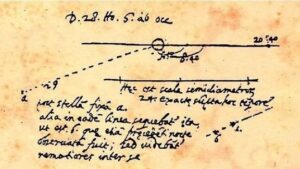 D. 28. Ho. 5. ab occ
20:40
fix
a
Hec est scala semidiametroru
24 exacte
post stellā fixā a
alia in eadē linea sequebat ita
ut est b que etiā precedēti nocte
observata fuit; sed videbat
remotiores inter se
b